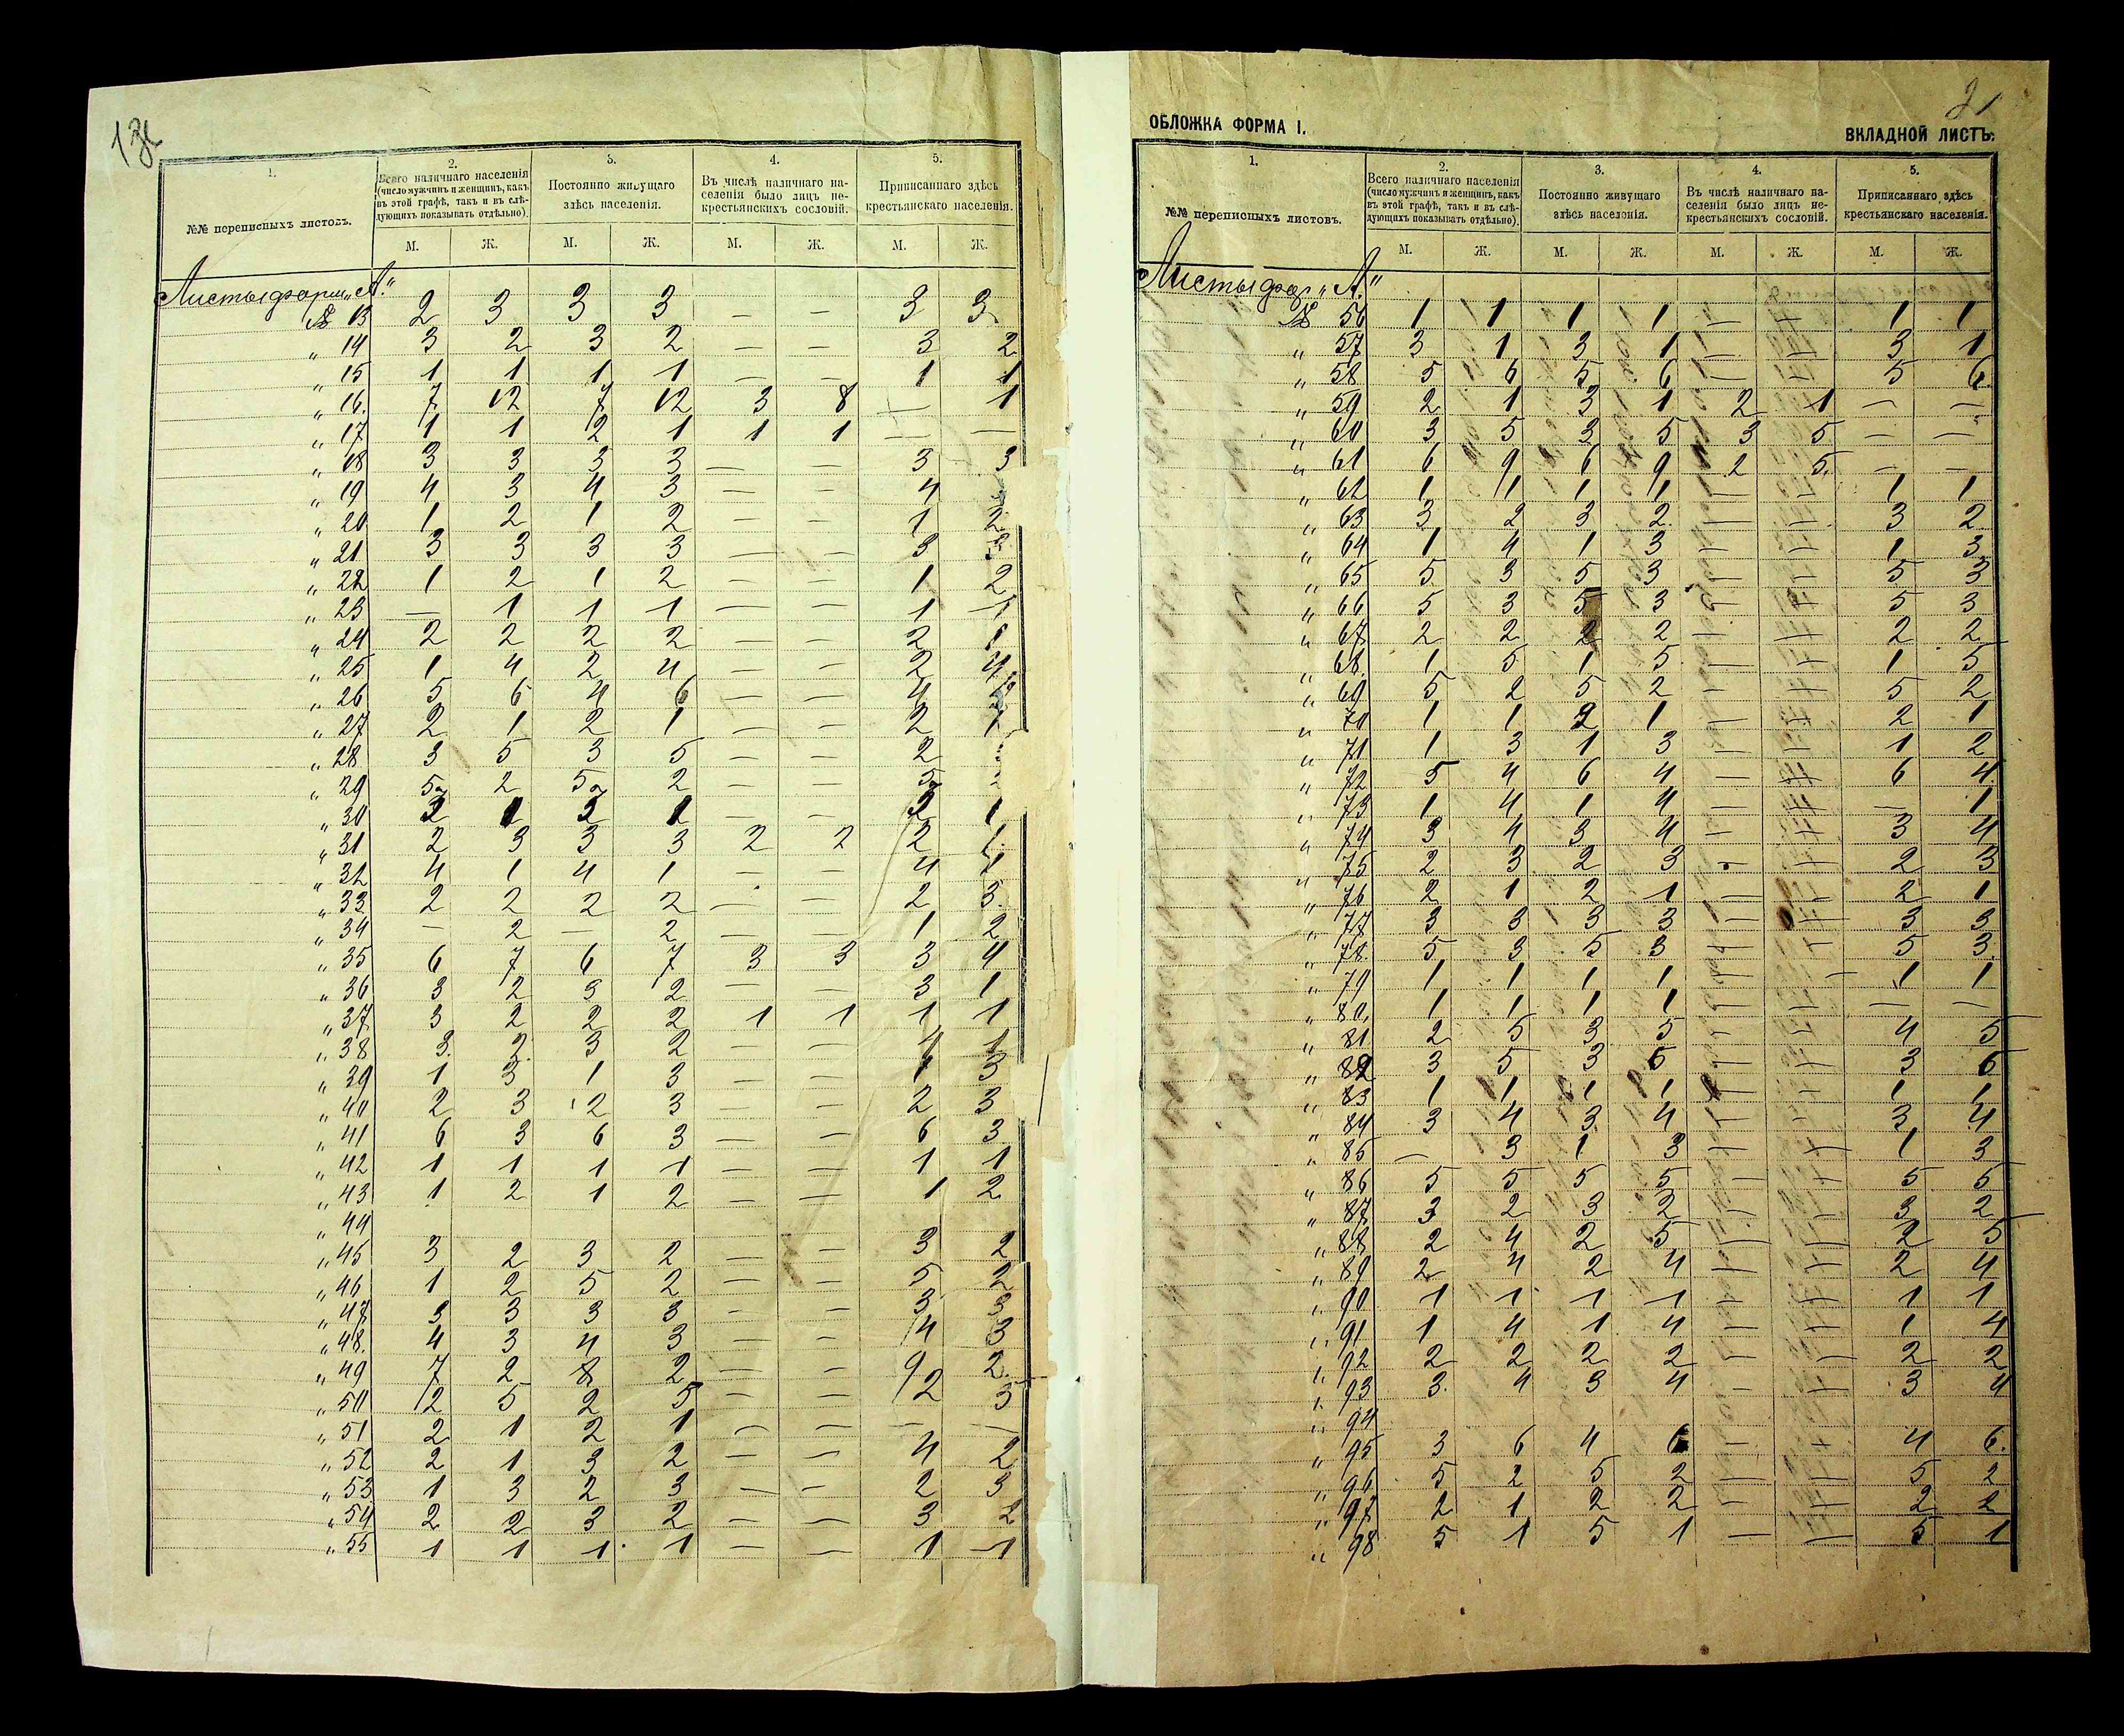 13
1.
№№ переписныхъ листовъ.
2.
Всего наличнаго населенія
(число мужчинъ и женщинъ, какъ
въ этой графѣ, такъ и въ слѣ-
дующихъ показывать отдѣльно).
3.
Постоянно живущаго
здѣсь населенія.
4.
Въ числѣ наличнаго на-
селенія было лицъ не-
крестьянскихъ сословій.
5.
Приписаннаго здѣсь
крестьянскаго населенія.
М. Ж. М. Ж. М. Ж. М. Ж.
Листы форм. „А."
№ 13 2 3 3 3 — — 3 3
„ 14 3 2 3 2 — — 3 2
„ 15 1 1 1 1 — — 1 1
„ 16. 7 12 7 12 3 8 — 1
„ 17 1 1 2 1 1 1 — —
„ 18 3 3 3 3 — — 3 3
„ 19 4 3 4 3 — — 4
„ 20 1 2 1 2 — — 1 2
„ 21 3 3 3 3 — — 3 3
„ 22 1 2 1 2 — — 1 2
„ 23 — 1 1 1 — — 1 1
„ 24 2 2 2 2 — — 2
„ 25 1 4 2 4 — — 2 4
„ 26 5 6 4 6 — — 4
„ 27 2 1 2 1 — — 2 1
„ 28 3 5 3 5 — — 2
„ 29 5 2 5 2 — — 5
„ 30 2 1 2 1 — — 2 1
„ 31 2 3 3 3 2 2 2 1
„ 32 4 1 4 1 — — 4 1
„ 33 2 2 2 2 — — 2 3.
„ 34 — 2 — 2 — — 1 2
„ 35 6 7 6 7 3 3 3 4
„ 36 3 2 3 2 — — 3 1
„ 37 3 2 2 2 1 1 1 1
„ 38 3. 2. 3 2 — — 1
„ 39 1 3 1 3 — — 1 3
„ 40 2 3 2 3 — — 2 3
„ 41 6 3 6 3 — — 6 3
„ 42 1 1 1 1 — — 1 1
„ 43 1 2 1 2 — — 1 2
„ 44
„ 45 3 2 3 2 — — 3 2
„ 46 1 2 5 2 — — 5 2
„ 47 3 3 3 3 — — 3 3
„ 48. 4 3 4 3 — — 4 3
„ 49 7 2 8 2 — — 9 2.
„ 50 2 5 2 5 — — 2 5
„ 51 2 1 2 1 — — — —
„ 52 2 1 3 2 — — 4 2
„ 53 1 3 2 3 — — 2 3
„ 54 2 2 3 2 — — 3 2
„ 55 1 1 1 1 — — 1 1
21
ОБЛОЖКА ФОРМА I.
ВКЛАДНОЙ ЛИСТЪ.
1.
№№ переписныхъ листовъ.
2.
Всего наличнаго населенія
(число мужчинъ и женщинъ, какъ
въ этой графѣ, такъ и въ слѣ-
дующихъ показывать отдѣльно).
3.
Постоянно живущаго
здѣсь населенія.
4.
Въ числѣ наличнаго на-
селенія было лицъ не-
крестьянскихъ сословій.
5.
Приписаннаго здѣсь
крестьянскаго населенія.
М. Ж. М. Ж. М. Ж. М. Ж.
Листы фор. „А."
№ 56 1 1 1 1 — — 1 1
„ 57 3 1 3 1 — — 3 1
„ 58 5 6 5 6 — — 5 6
„ 59 2 1 3 1 2 1 — —
„ 60 3 5 3 5 3 5 — —
„ 61 6 9 6 9 2 5. — —
„ 62 1 1 1 1 — — 1 1
„ 63 3 2 3 2 — — 3 2
„ 64 1 4 1 3 — — 1 3
„ 65 5 3 5 3 — — 5 3
„ 66 5 3 5 3 — — 5 3
„ 67 2 2 2 2 — — 2 2
„ 68. 1 5 1 5 — — 1 5
„ 69 5 2 5 2 — — 5 2
„ 70 1 1 2 1 — — 2 1
„ 71 1 3 1 3 — — 1 2
„ 72 5 4 6 4 — — 6 4
„ 73 1 4 1 4 — — — 1
„ 74 3 4 3 4 — — 3 4
„ 75 2 3 2 3 — — 2 3
„ 76 2 1 2 1 — — 2 1
„ 77 3 3 3 3 — — 3 3
„ 78. 5 3 5 3 — — 5 3
„ 79 1 1 1 1 — — 1 1
„ 80 1 1 1 1 — — — —
„ 81 2 5 3 5 — — 4 5
„ 82 3 5 3 6 — — 3 6
„ 83 1 1 1 1 — — 1 1
„ 84 3 4 3. 4 — — 3 4
„ 85 — 3 1 3 — — 1 3
„ 86 5 5 5 5 — — 5 5
„ 87 3 2 3 2 — — 3 2
„ 88 2 4 2 5 — — 2 5
„ 89 2 4 2 4 — — 2 4
„ 90 1 1 1 1 — — 1 1
„ 91 1 4 1 4 — — 1 4
„ 92 2 2 2 2 — — 2 2
„ 93 3. 4 3 4 — — 3 4
„ 94
„ 95 3 6 4 6 — — 4 6.
„ 96 5 2 5 2 — — 5 2
„ 97 2 1 2 2 — — 2 2
„ 98 5 1 5 1 — — 5 1